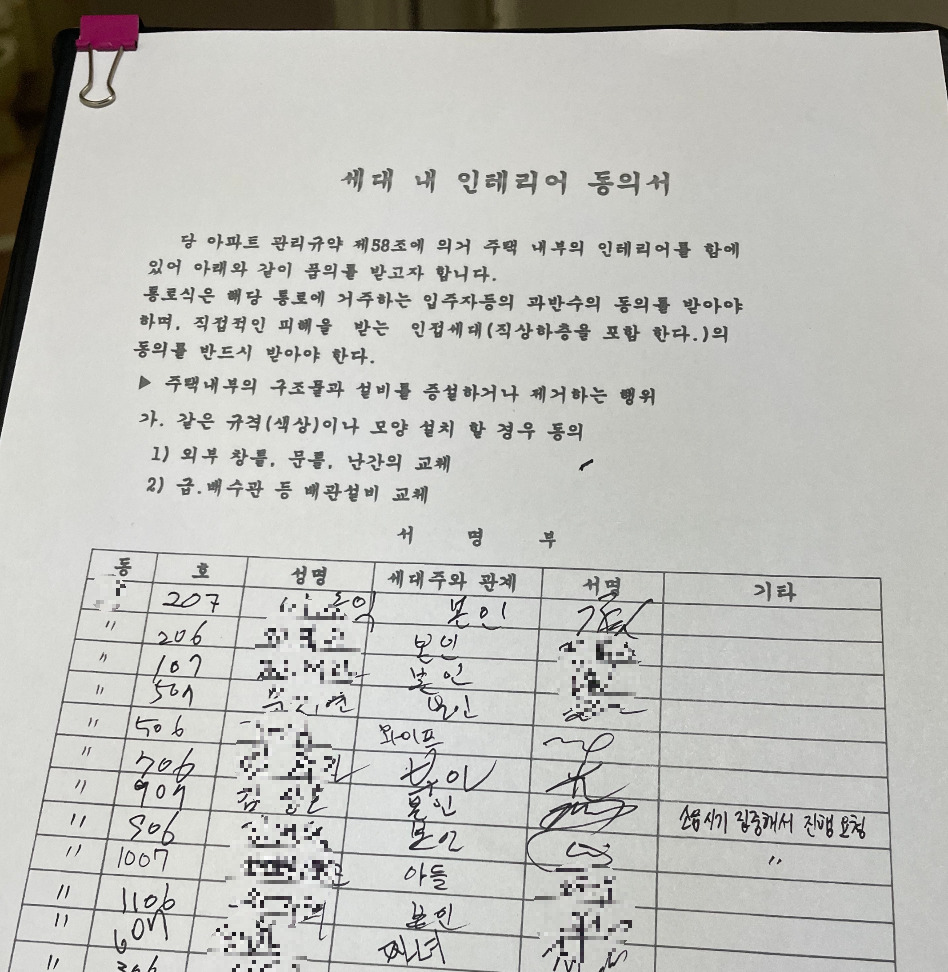 세대 내 인테리어 동의서
당 아파트 관리규약 제58조에 의거 주택 내부의 인테리어를 함에
있어 아래와 같이 품의를 받고자 합니다.
통로식은 해당 통로에 거주하는 입주자등의 과반수의 동의를 받아야
하며, 직접적인 피해을 받는 인접세대(직상하층을 포함 한다.)의
동의를 반드시 받아야 한다.
▶ 주택내부의 구조물과 설비를 증설하거나 제거하는 행위
가. 같은 규격(색상)이나 모양 설치 할 경우 동의
1) 외부 창틀, 문틀, 난간의 교체
2) 급.배수관 등 배관설비 교체
서 명 부
동 호 성명 세대주와 관계 서명 기타
207 본인
〃 206 본인
〃 107 본인
〃 507 본인
〃 506 와이프
〃 706
〃 907 본인 소음시기 집중해서 진행 요청
〃 906 본인 〃
〃 1007 아들
〃 1106 본인
〃 607 자녀
〃 306